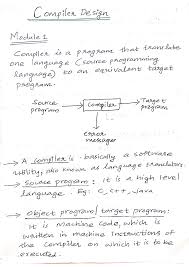 Compiler Design
Module 1
Compiler is a program that translate
one language (source programming
language) to an equivalent target
program.
Source program → Compiler → Target program
↓
error messages
→ A compiler is basically a software
utility, also known as language translators.
→ Source program: it is a high level
language. Eg: C, C++, Java
→ Object program/target program:
It is machine code, which is
written in machine instructions of
the compiler on which it is to be
executed.